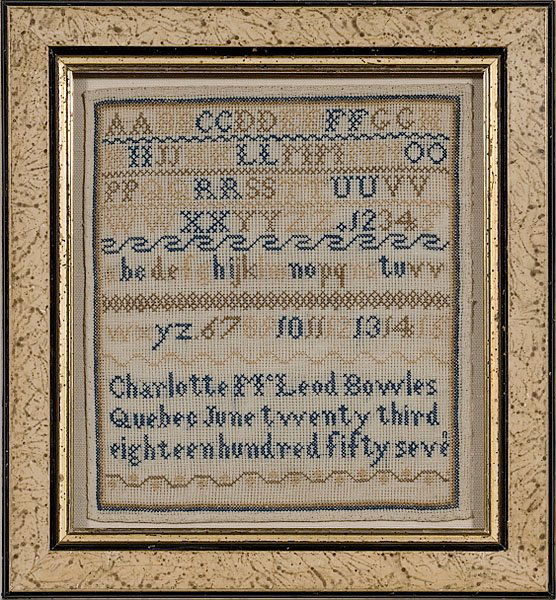 AA CC DD FF GG
II JJ LL OO
PP RR SS UU VV
XX YY ZZ 1 2 3 4
b c d e h i j k n o p q t u v v
y z 6 7 10 11 13 14
Charlotte Mc Leod Bowles
Quebec June twenty third
eighteen hundred fifty seve